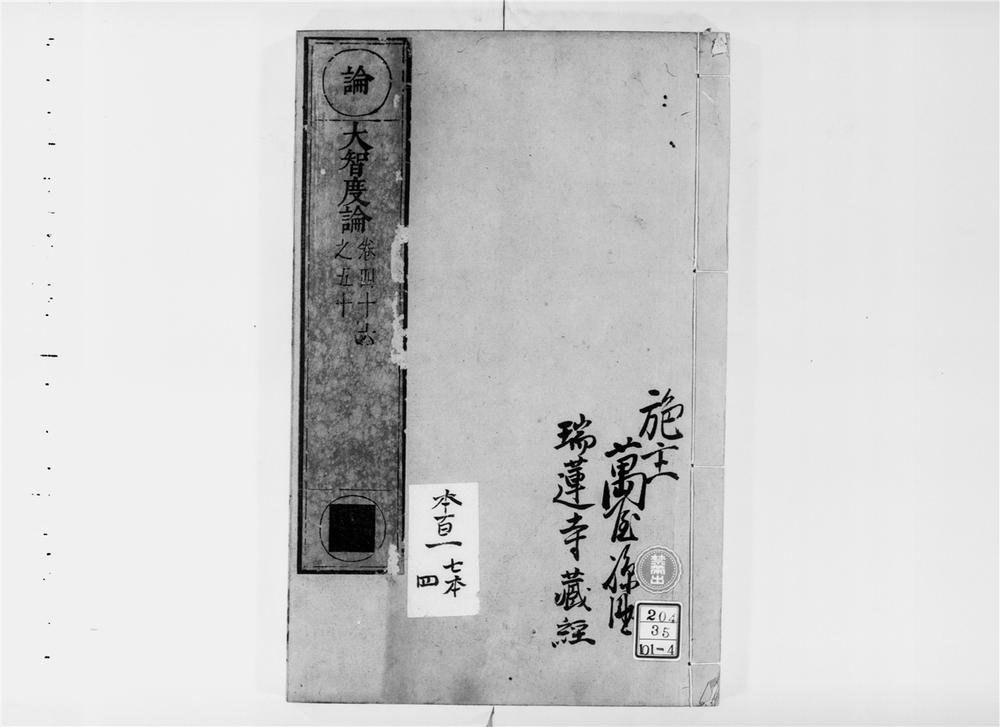 論
大智度論
卷四十六
之五十
施主
萬屋孫
瑞蓮寺藏經
本百一
七本
四
禁帶出
204
35
101-4